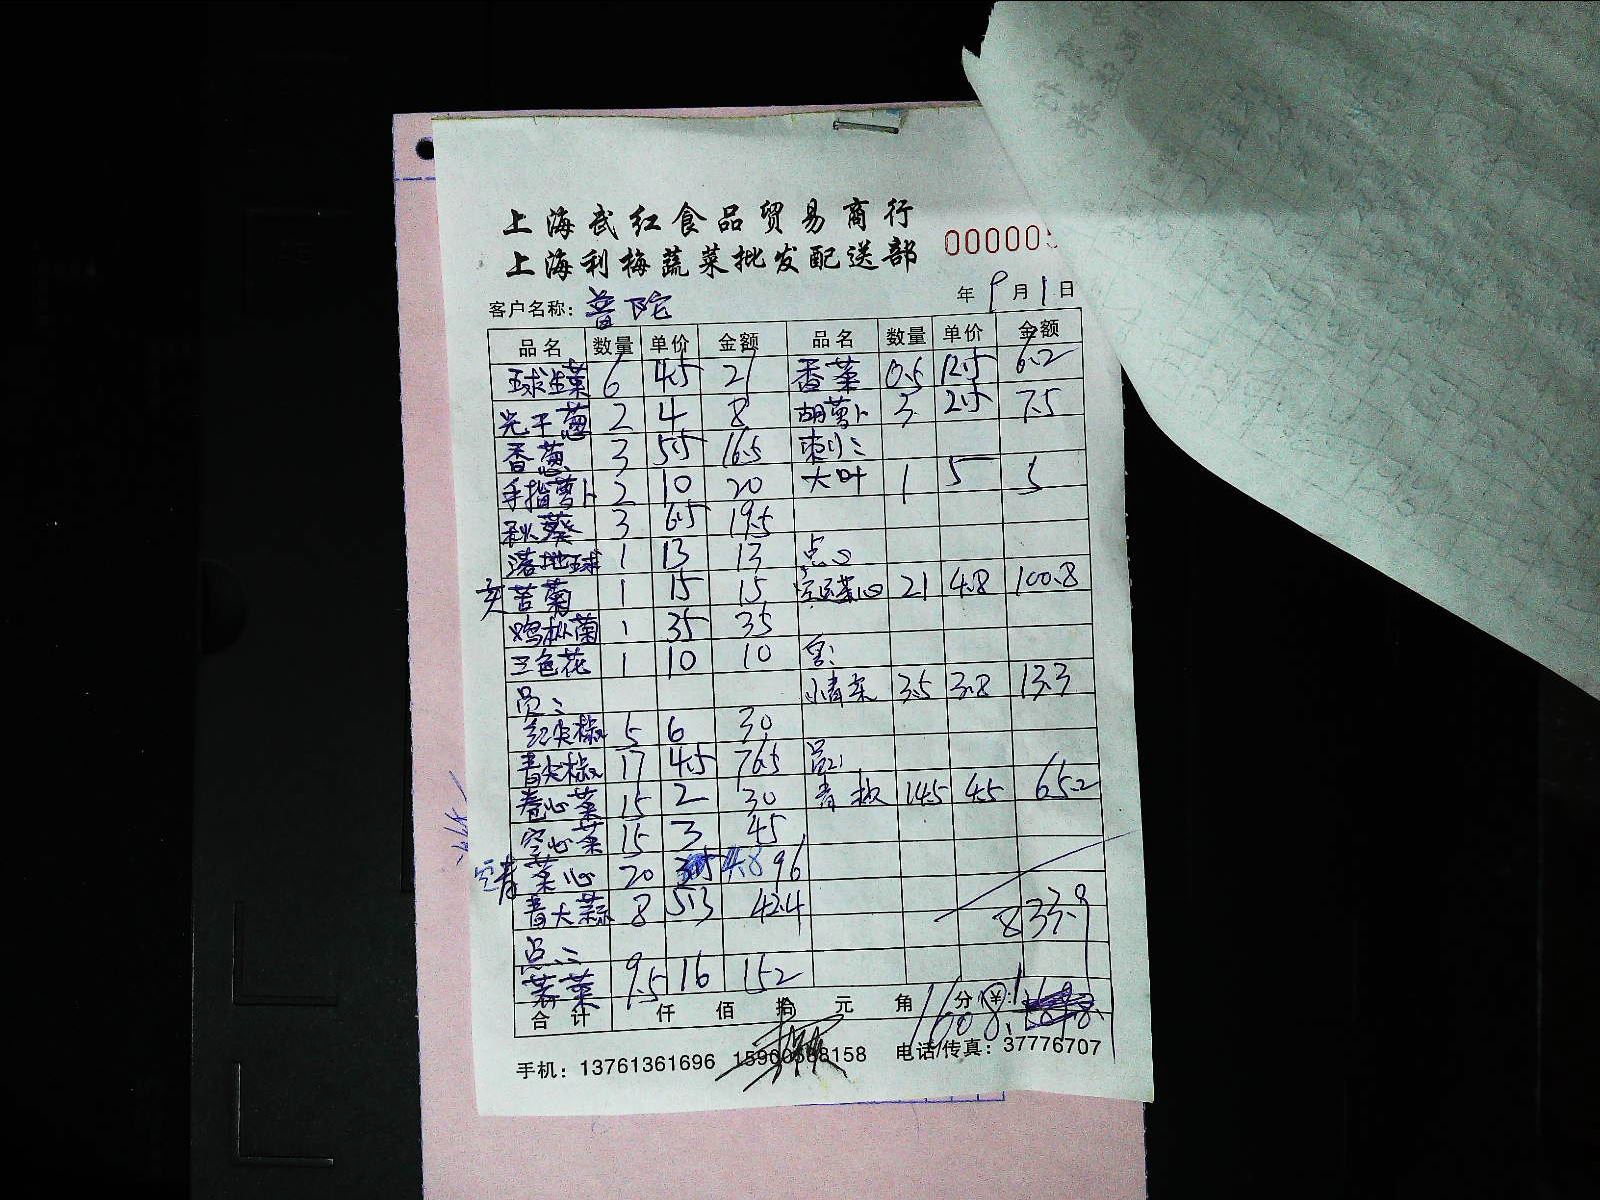 上海武红食品贸易商行
上海利梅蔬菜批发配送部
000005
客户名称: 普陀 年 9月1日
品名 数量 单价 金额 品名 数量 单价 金额
球生菜 6 4.5 21 香菜 0.5 12.5 6.2
光干葱 2 4 8 胡萝卜 3 2.5 7.5
香葱 3 5.5 16.5
手指萝卜 2 10 20 大叶 1 5 5
秋葵 3 6.5 19.5
落地球 1 13 13 点心
苦菊 1 15 15 菜心 21 4.8 100.8
鸡枞菌 1 35 35
三色花 1 10 10
员: 小青菜 3.5 3.8 13.3
红尖椒 5 6 30
青尖椒 17 4.5 76.5
卷心菜 15 2 30 青椒 14.5 4.5 65.2
空心菜 15 3 45
菜心 20 4.8 96
青大蒜 8 5.3 42.4
833.9
点:
荠菜 9.5 16 152
合计 仟 佰 拾 元 角 分 ¥: 1608.1
手机: 13761361696 电话/传真: 37776707